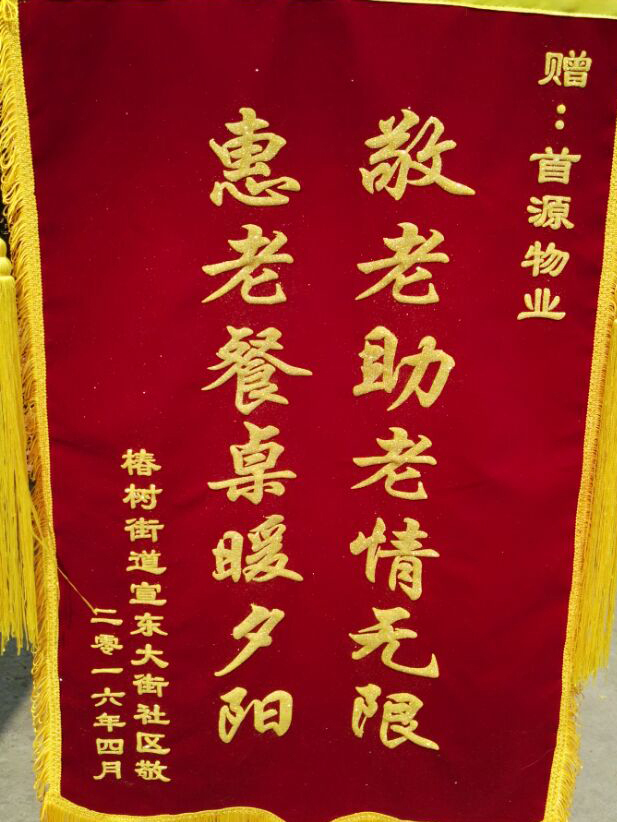 赠：首源物业
敬老助老情无限
惠老餐桌暖夕阳
椿树街道宣东大街社区敬
二零一六年四月